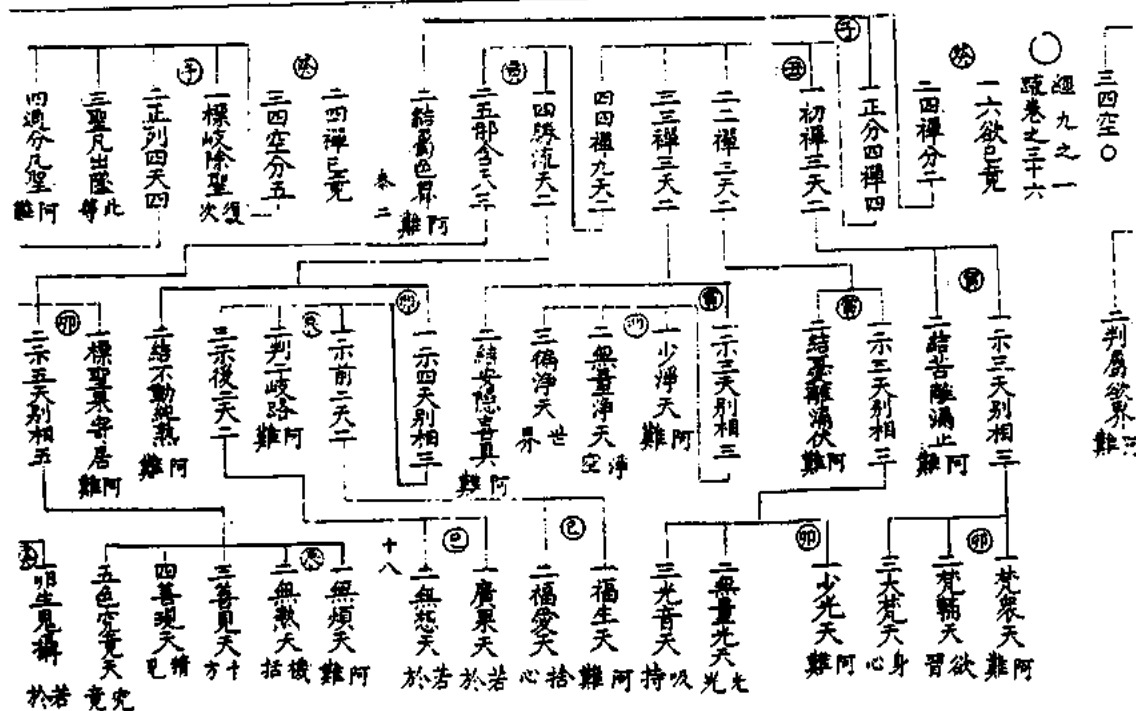 三四空〇
經九之一
疏卷之三十六
癸
一六欲已竟
二四禪分二
子
一正分四禪四
丑
一初禪三天二
二二禪三天二
三三禪三天二
四四禪九天二
一四勝流天二
二五部含三
二結屬色界 阿難
二四禪已竟
三四空分五
一標岐除聖 復次
子
二正列四天四
三聖凡出墜 此等
四通分凡聖 阿難
二判屬欲界 阿難
一示三天別相三
寅
二結苦離漏止 阿難
一示三天別相三
寅
二結憂離漏伏 阿難
一示三天別相三
寅
一少淨天 阿難
二無量淨天 淨空
三徧淨天 世界
二結安隱喜具 阿難
一示四天別相三
卯
一示前二天二
辰
二判二岐路 阿難
三示後二天二
二結不動純熟 阿難
一標聖果寄居 阿難
卯
二示五天別相五
一梵眾天 阿難
卯
二梵輔天 欲習
三大梵天 身心
一少光天 阿難
卯
二無量光天 光光
三光音天 吸持
一福生天 阿難
巳
二福愛天 捨心
一廣果天 若於
巳
二無想天 若於
十八
一無煩天 阿難
二無熱天 機括
三善見天 十方
四善現天 精見
五色究竟天 究竟
若於